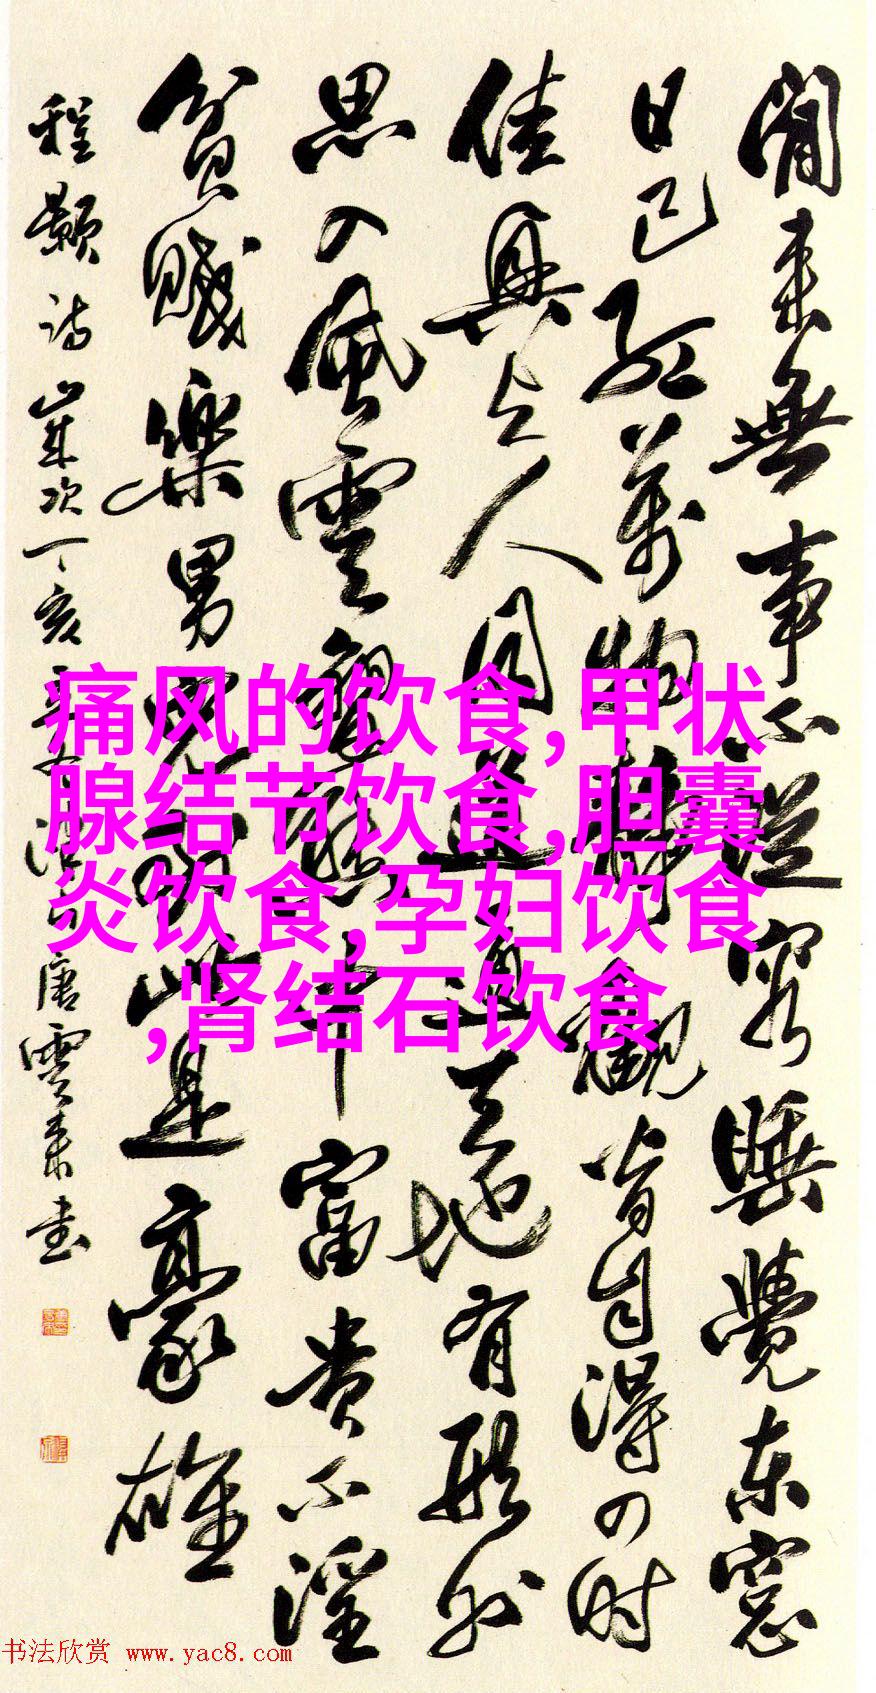 閒来無事不從容睡覺东窓
日已紅萬物静觀皆自得四时
佳興与人同道通天地有形外
思入風雲變態中富贵不淫
貧賤樂男兒到此是豪雄
程颢诗岁次丁亥唐雲来书
痛风的饮食,甲状
腺结节饮食,胆囊
炎饮食,孕妇饮食
,肾结石饮食
书法欣赏 www.yac8.com